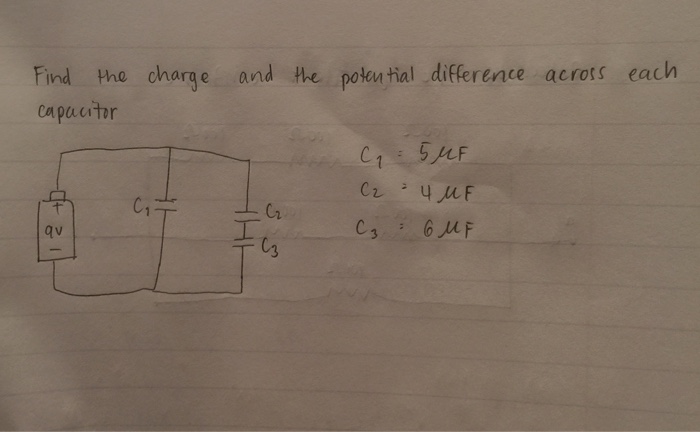 Find the charge and the potential difference across each
capacitor
C1 = 5 μF
C2 = 4 μF
C3 = 6 μF
+
9v
-
C1
C2
C3